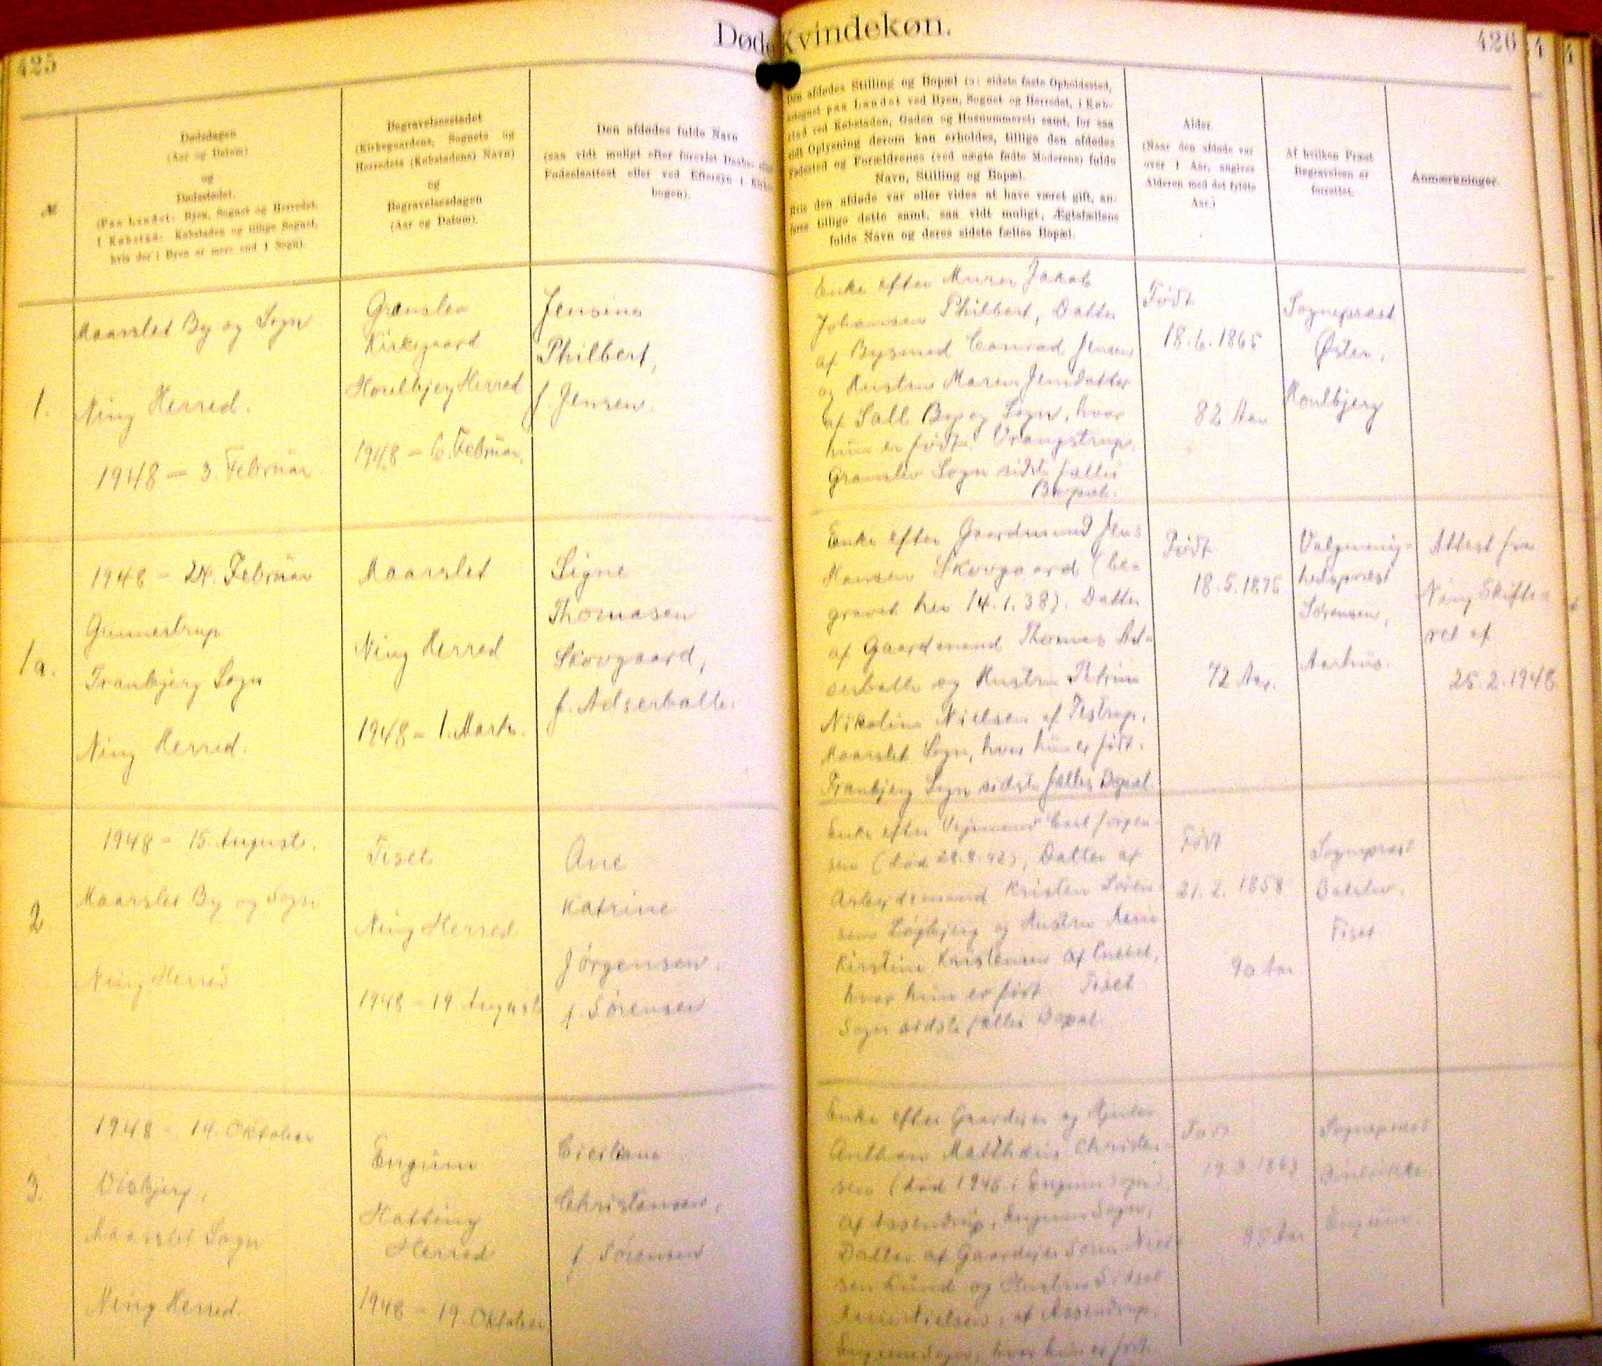 425
Døde Kvindekøn.
426
№
Dødsdagen
(Aar og Datum)
og
Dødsstedet.
(Paa Landet: Byen, Sognet og Herredet,
i Købstad: Købstaden og tillige Sognet,
hvis der i Byen er mere end 1 Sogn).
Begravelsesstedet
(Kirkegaardens, Sognets og
Herredets (Købstadens) Navn)
og
Begravelsesdagen
(Aar og Datum).
Den afdødes fulde Navn
(saa vidt muligt efter forevist Daabs- eller
Fødselsattest eller ved Eftersyn i Kirke-
bogen).
Den afdødes Stilling og Bopæl (ɔ: sidste faste Opholdssted,
paa Landet ved Byen, Sognet og Herredet, i Køb-
stad ved Købstaden, Gaden og Husnummeret) samt, for saa
vidt Oplysning derom kan erholdes, tillige den afdødes
Fødested og Forældrenes (ved uægte fødte Moderens) fulde
Navn, Stilling og Bopæl.
Hvis den afdøde var eller vides at have været gift, an-
føres tillige dette samt, saa vidt muligt, Ægtefællens
fulde Navn og deres sidste fælles Bopæl.
Alder.
(Naar den afdøde var
over 1 Aar, angives
Alderen med det fyldte
Aar.)
Af hvilken Præst
Begravelsen er
forrettet.
Anmærkninger.
1.
Maarslet By og Sogn
Ning Herred.
1948 – 3. Februar
Granslev
Kirkegaard
Houlbjerg Herred
1948 – 6. Februar.
Jensine
Philbert,
f. Jensen.
Enke efter Murer Jakob
Johansen Philbert, Datter
af Bysmed Conrad Jensen
og Hustru Maren Jensdatter
af Sall By og Sogn, hvor
hun er født. Vrangstrup,
Granslev Sogn sidste fælles
Bopæl.
Født
18.6.1865
82 Aar
Sognepræst
Øster,
Houlbjerg
1a.
1948 – 24. Februar
Gunnestrup
Tranbjerg Sogn
Ning Herred.
Maarslet
Ning Herred
1948 – 1. Marts.
Signe
Thomasen
Skovgaard,
f. Adserballe.
Enke efter Gaardmand Jens
Hansen Skovgaard (be-
gravet her 14.1.38). Datter
af Gaardmand Thomas Ad-
serballe og Hustru Petrine
Nikoline Nielsen af Testrup,
Maarslet Sogn, hvor hun er født.
Tranbjerg Sogn sidste fælles Bopæl
Født
18.5.1875
72 Aar.
Valgmenig-
hedspræst
Sørensen,
Aarhus.
Attest fra
Ning Skifte-
ret af
25.2.1948
2
1948 – 15. August.
Maarslet By og Sogn
Ning Herred
Tiset
Ning Herred
1948 – 19. August
Ane
Katrine
Jørgensen.
f. Sørensen
Enke efter Vejmand Carl Jørgen-
sen (død 28.8.42), Datter af
Arbejdsmand Kristen Søren-
sen Løgbjerg og Hustru Karen
Kirstine Kristensen af
hvor hun er født. Tiset
Sogn sidste fælles Bopæl
Født
21.2.1858
90 Aar
Sognepræst
Balslev.
Tiset
3.
1948 – 14. Oktober
Visbjerg,
Maarslet Sogn
Ning Herred.
Engum
Hatting
Herred
1948 – 19. Oktober
Christensen,
f. Sørensen
Enke efter Gaardejer og
Anthon Matthæus Christen-
sen (død 1945 i Engum Sogn),
af Assendrup, Engum Sogn,
Datter af Gaardejer Søren Niel-
sen Lund og Hustru Sidsel
Marie Nielsen, af Assendrup,
Engum Sogn, hvor hun er født.
Født
85 Aar
Sognepræst
Engum.